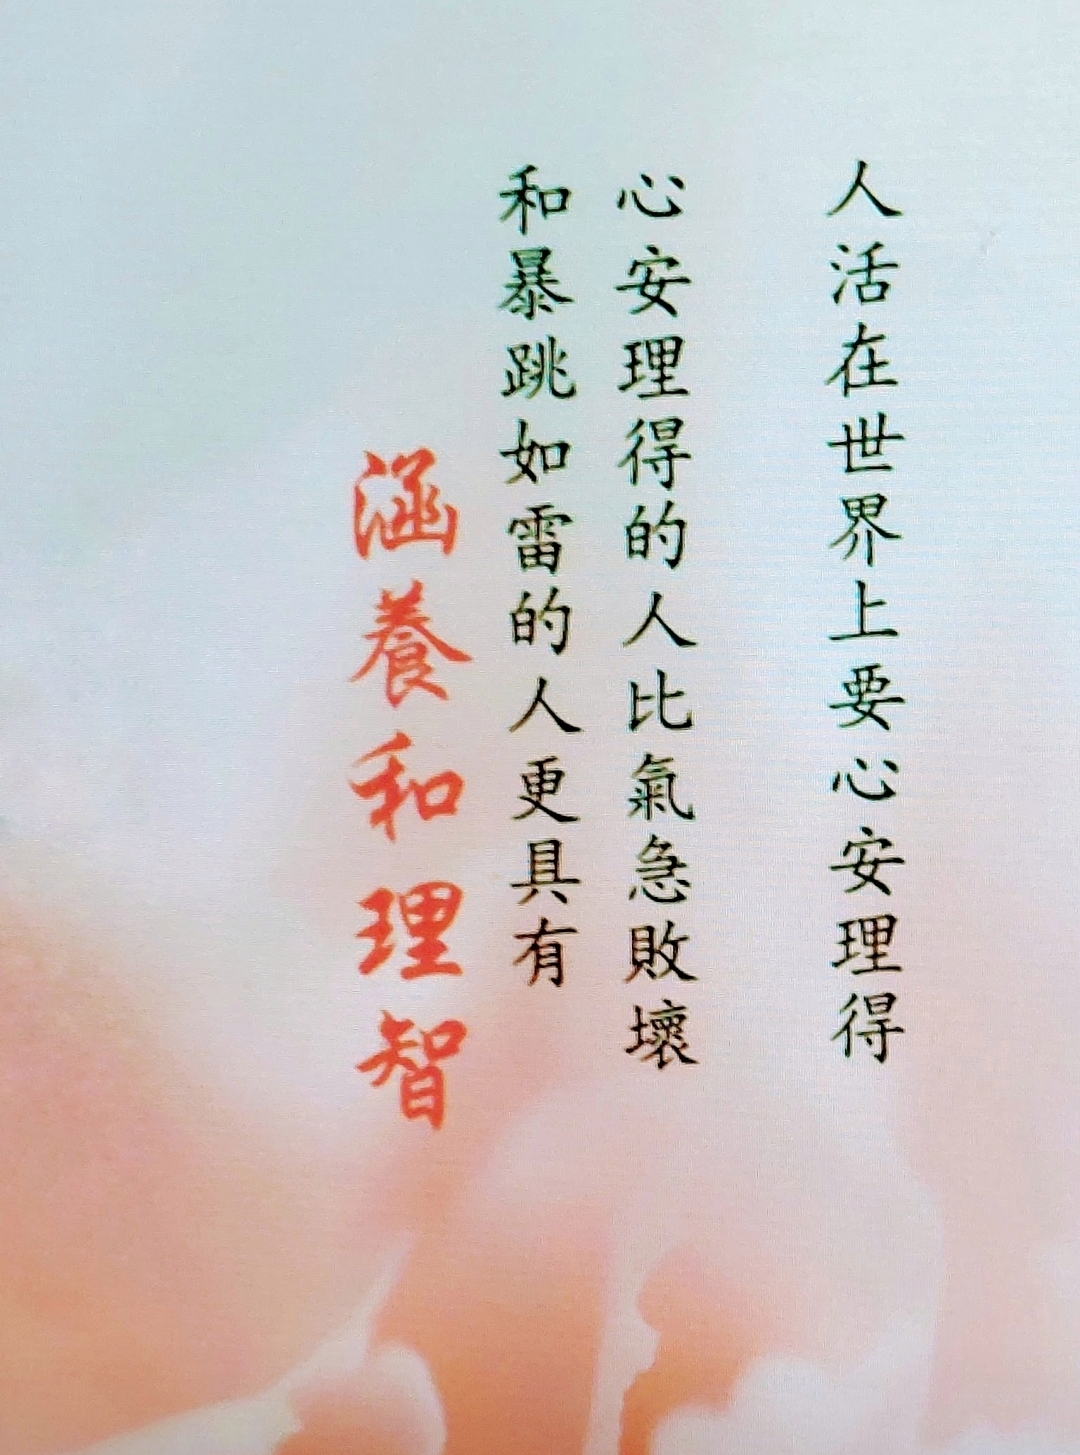 人活在世界上要心安理得
心安理得的人比氣急敗壞
和暴跳如雷的人更具有
涵養和理智